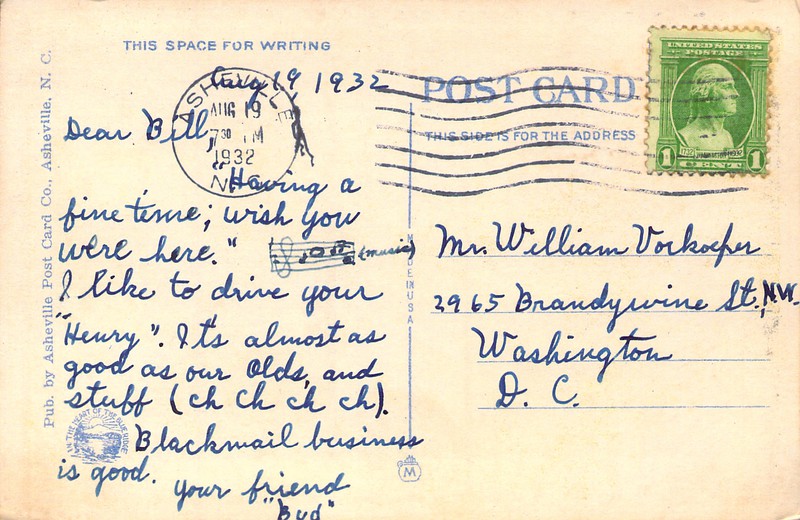 THIS SPACE FOR WRITING
Aug 19, 1932
ASHEVILLE
AUG 19
7 30 PM
1932
N.C.
Dear Bill,
"Having a
fine time; wish you
were here."
(music)
I like to drive your
"Henry". It's almost as
good as our Olds, and
stuff (ch ch ch ch).
Blackmail business
is good.
Your friend
"Bud"
Pub. by Asheville Post Card Co., Asheville, N. C.
IN THE HEART OF THE BLUE RIDGE
MADE IN USA
M
POST CARD
THIS SIDE IS FOR THE ADDRESS
UNITED STATES
POSTAGE
1 1
CENT
Mr. William Vorkoeper
2965 Brandywine St., N.W.
Washington
D. C.